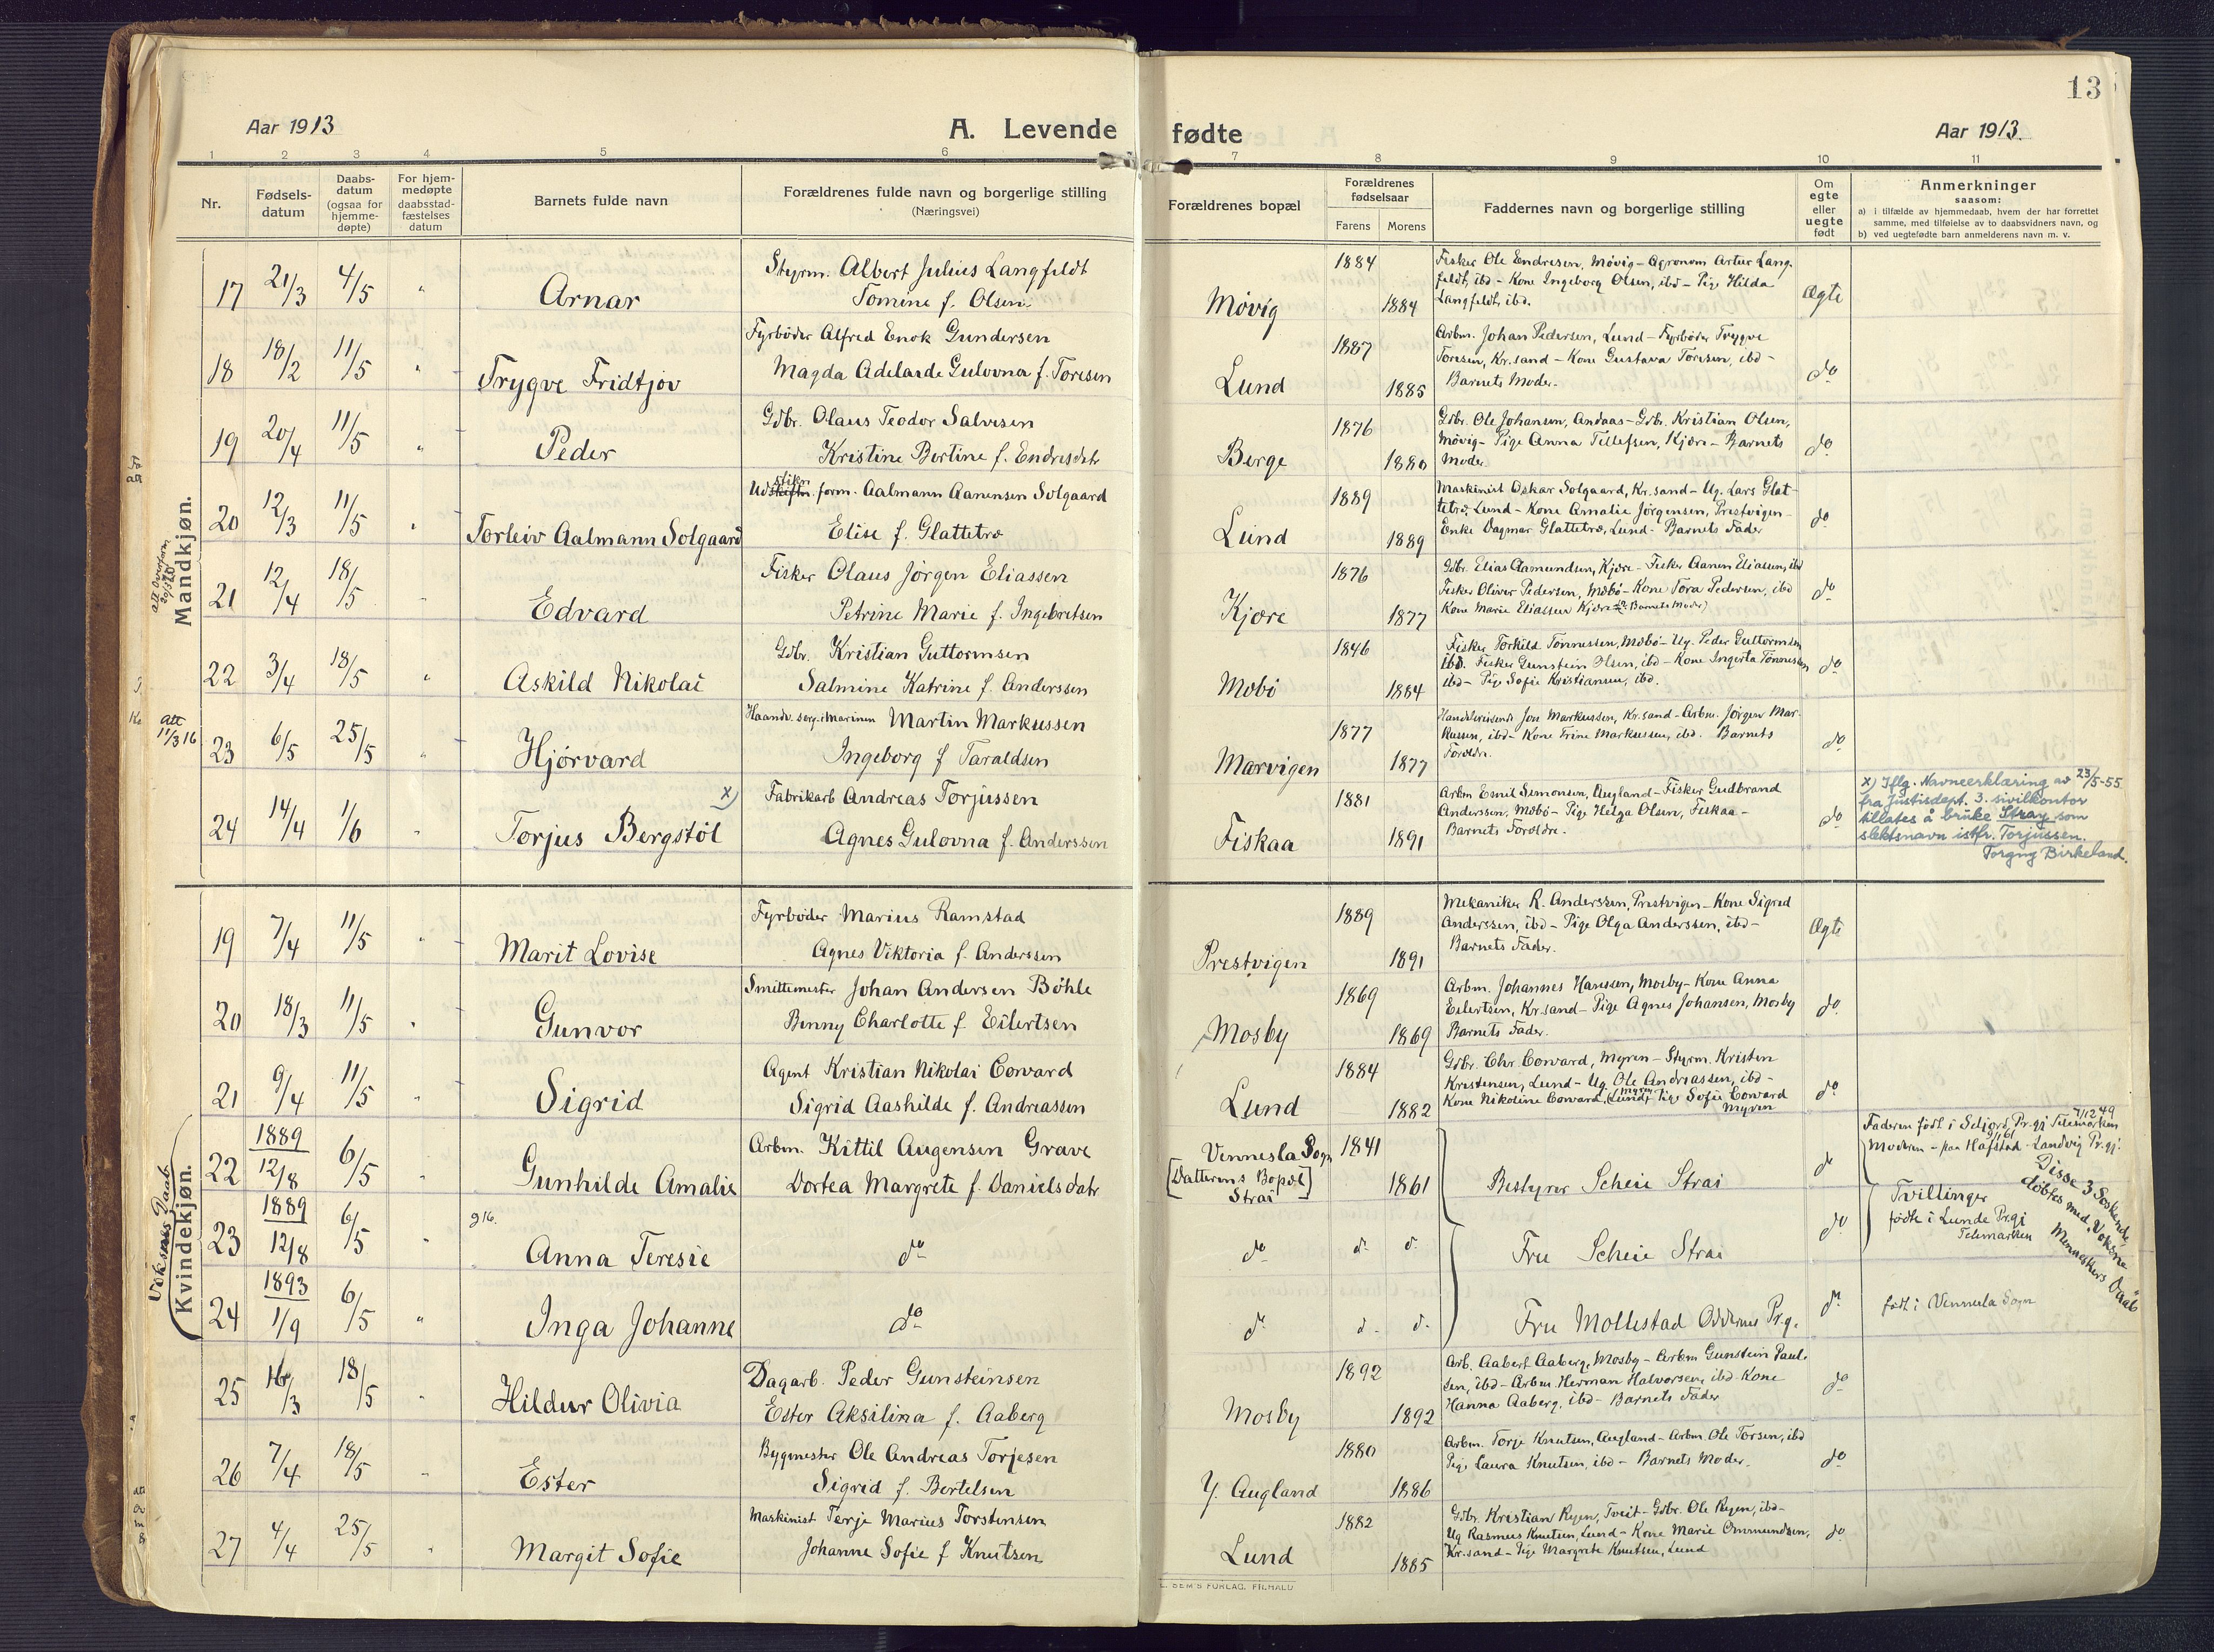 13
Aar 1913
A. Levende fødte
Aar 1913.
1 2 3 4 5 6 7 8 9 10 11
Nr.
Fødsels-
datum
Daabs-
datum
(ogsaa for
hjemme-
døpte)
For hjem-
medøpte
daabsstad-
fæstelses
datum
Barnets fulde navn
Forældrenes fulde navn og borgerlige stilling
(Næringsvei)
Forældrenes bopæl
Forældrenes
fødselsaar
Farens Morens
Faddernes navn og borgerlige stilling
Om
egte
eller
uegte
født
Anmerkninger
saasom:
a) i tilfælde av hjemmedaab, hvem der har forrettet
samme, med tilføielse av to daabsvidners navn, og
b) ved uegtefødte barn anmelderens navn m. v.
Mandkjøn.
17 21/3 4/5 " Arnar
Styrm. Albert Julius Langfeldt
Tomine f. Olsen
Møvig 1884 1884
Fisker Ole Endresen, Møvig - Agronom Artur Lang-
feldt, ibd - Kone Ingeborg Olsen, ibd - Pige Hilda
Langfeldt, ibd.
Ægte
18 18/2 11/5 " Trygve Fridtjov
Fyrbøder Alfred Enok Gundersen
Magda Adelaide Gulovna f. Toresen
Lund 1887 1885
Arbm. Johan Pedersen, Lund - Fyrbøder Trygve
Toresen, Kr.sand - Kone Gustava Toresen, ibd -
Barnets Moder.
do
19 20/4 11/5 " Peder
Gdbr. Olaus Teodor Salvesen
Kristine Bertine f. Endresdtr
Berge 1876 1880
Gdbr. Ole Johansen, Andaas - Gdbr. Kristian Olsen,
Møvig - Pige Anna Tellefsen, Kjære - Barnets
Moder.
do
20 12/3 11/5 " Torleiv Aalmann Solgaard
form. Aalmann Aanensen Solgaard
Elise f. Glattetræ
Lund 1889 1889
Maskinist Oskar Solgaard, Kr.sand - Ug. Lars Glat-
tetræ, Lund - Kone Amalie Jørgensen, Prestvigen -
Enke Dagmar Glattetræ, Lund - Barnets Fader
do
21 12/4 18/5 " Edvard
Fisker Olaus Jørgen Eliassen
Petrine Marie f. Ingebretsen
Kjære 1876 1877
Gdbr. Elias Aamundsen, Kjære - Fisker Aanen Eliassen, ibd
Fisker Oliver Pedersen, Mæbø - Kone Tora Pedersen, ibd
Kone Marie Eliassen Kjære (Barnets Moder)
do
22 3/4 18/5 " Askild Nikolai
Gdbr. Kristian Guttormsen
Salmine Katrine f. Anderssen
Mæbø 1846 1884
Fisker Torkild Tønnessen, Mæbø - Ug. Peder Guttormsen
ibd. Fisker Gunstein Olsen, ibd - Kone Ingerta Tønnessen
ibd - Pige Sofie Kristiansen, ibd.
do
23 6/5 25/5 " Hjørvard
Martin Markussen
Ingeborg f Taraldsen
Marvigen 1877 1877
Handelsreisende Jon Markussen, Kr.sand - Arbm. Jørgen Mar-
kussen, ibd - Kone Trine Markussen, ibd. Barnets
Forældre.
do
24 14/4 1/6 " Torjus Bergstøl x)
Fabrikarb Andreas Torjussen
Agnes Gulovna f. Anderssen
Fiskaa 1881 1891
Arbm Emil Simonsen, Augland - Fisker Gudbrand
Andersen, Mæbø - Pige Helga Olsen, Fiskaa -
Barnets Forældre.
do
x) Iflg. Navneerklæring av 23/5-55
fra Justisdept. 3. sivilkontor
tillates å bruke Stray som
slektsnavn istfr. Torjussen.
Torgny Birkeland.
Kvindekjøn.
19 7/4 11/5 " Marit Lovise
Fyrbøder Marius Ramstad
Agnes Viktoria f. Anderssen
Prestvigen 1889 1891
Mekaniker R. Anderssen, Prestvigen - Kone Sigrid
Anderssen, ibd - Pige Olga Anderssen, ibd -
Barnets Fader.
Ægte
20 18/3 11/5 " Gunvor
Smittemester Johan Andersen Bøhle
Benny Charlotte f. Eilertsen
Mosby 1869 1869
Arbm. Johannes Hanssen, Mosby - Kone Anna
Eilertsen, Kr.sand - Pige Agnes Johansen, Mosby
Barnets Fader.
do
21 9/4 11/5 " Sigrid
Agent Kristian Nikolai Coward
Sigrid Aashilde f. Andreassen
Lund 1884 1882
Gdbr. Chr. Coward, Myren - Styrm. Kristen
Kristensen, Lund - Ug. Ole Andreassen, ibd -
Kone Nikoline Coward, Myren Pige Sofie Coward
Myren
do
Voksnes Daab
22 1889 12/8 6/5 " Gunhilde Amalie
Arbm. Kittil Augensen Grave
Dortea Margrete f. Danielsdatr
Vennesla Sogn
[Datterens Bopæl]
Strai
1841 1861
Bestyrer Scheie Strai
do
Faderen født i Seljord Pr.gj Telemarken
Moderen - paa Hafstad - Landvig Pr.gj.
23 1889 12/8 6/5 " Anna Teresie
do do do do
Fru Scheie Strai
do
Tvillinger
født i Lunde Prgj
Telemarken
Disse 3 Søskende
døbtes med "Voksne
Menneskers Daab"
24 1893 1/9 6/5 " Inga Johanne
do do do do
Fru Mollestad Oddernes Pr.g.
do
født i Vennesla Sogn
25 16/3 18/5 " Hildur Olivia
Dagarb. Peder Gunsteinsen
Ester Aksilina f. Aaberg
Mosby 1892 1892
Arb. Aabert Aaberg, Mosby - Arbm Gunstein Paul-
sen, ibd - Arbm. Herman Halvorsen, ibd - Kone
Hanna Aaberg, ibd - Barnets Fader
do
26 7/4 18/5 " Ester
Bygmester Ole Andreas Torjesen
Sigrid f. Bertelsen
Y. Augland 1880 1886
Arbm. Torje Knutsen, Augland - Arbm. Ole Torsen, ibd
Pige Laura Knutsen, ibd - Barnets Moder.
do
27 4/4 25/5 " Margit Sofie
Maskinist Terje Marius Torstensen
Johanne Sofie f Knutsen
Lund 1882 1885
Gdbr. Kristian Ryen, Tveit - Gdbr. Ole Ryen, ibd -
Ug Rasmus Knutsen, Lund - Kone Marie Ommundsen,
Kr.sand - Pige Margrete Knutsen, Lund
do